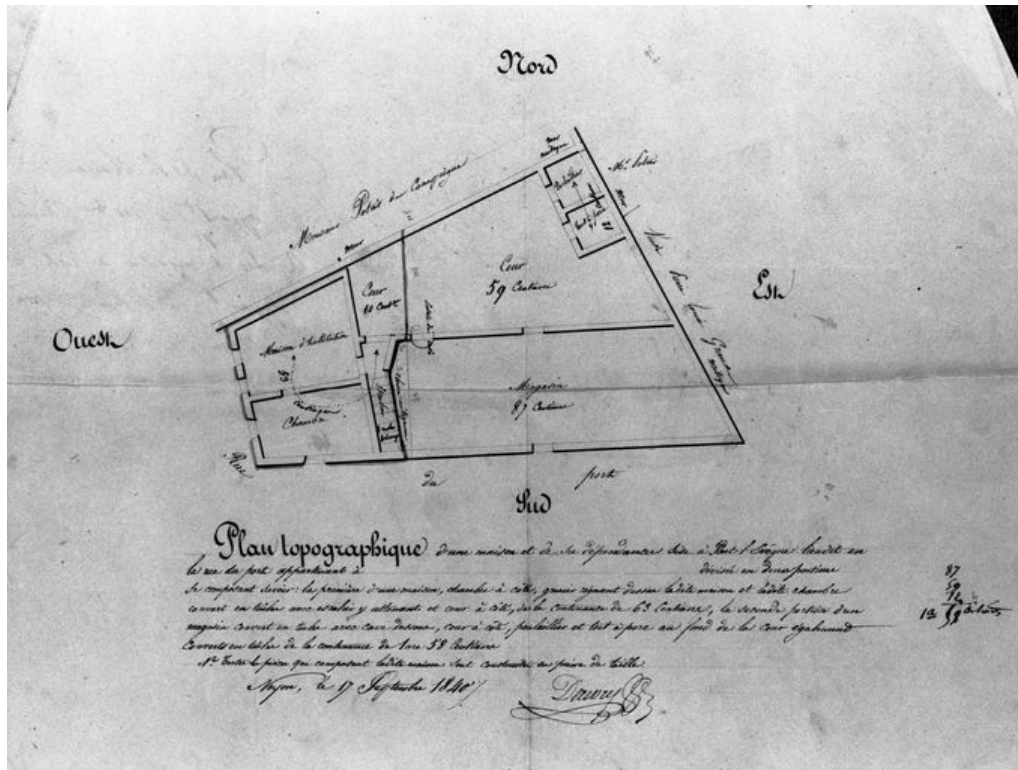 Nord
Mur
mitoyen
Mr. Potais
Monsieur Potais de Compiègne
Mur
Mur
Poulailler
12
Cour
59 Centiare
Cour
10 Cent.
Est
Ouest
Maison d'habitation
53
Magasin
87 Centiare
Chambre
Rue
du
port
Sud
Plan topographique d'une maison et de ses dépendances sise à Pont l'Evêque lieudit en
la rue du port appartenant à divisée en deux portions
se composant savoir : la première d'une maison, chambre à côté, grenier régnant dessus ladite maison et ladite chambre
couvert en tuiles avec escalier y attenant et cour à côté, de la contenance de 63 Centiare, la seconde portion d'un
magasin couvert en tuile avec cave dessous, cour à côté, poulailler et toit à porc au fond de la cour également
couverts en tuiles de la contenance de 1 are 58 Centiare
Nta. Toutes les pièces qui composent ladite maison sont construites en pierre de taille
Noyon, le 17 Septembre 1840
87
59
12